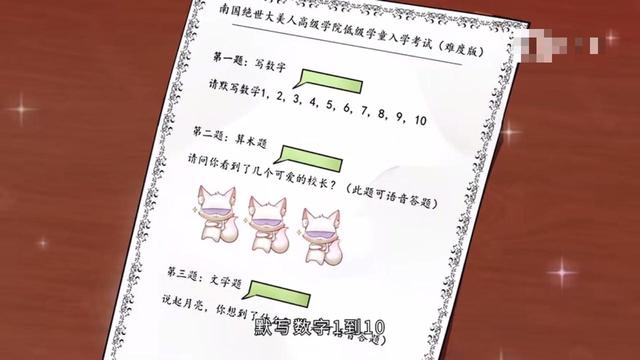 南国绝世大美人高级学院低级学童入学考试（难度版）
第一题：写数字
请默写数字1，2，3，4，5，6，7，8，9，10
第二题：算术题
请问你看到了几个可爱的校长？（此题可语音答题）
第三题：文学题
说起月亮，你想到了什
音答题）
默写数字1到10